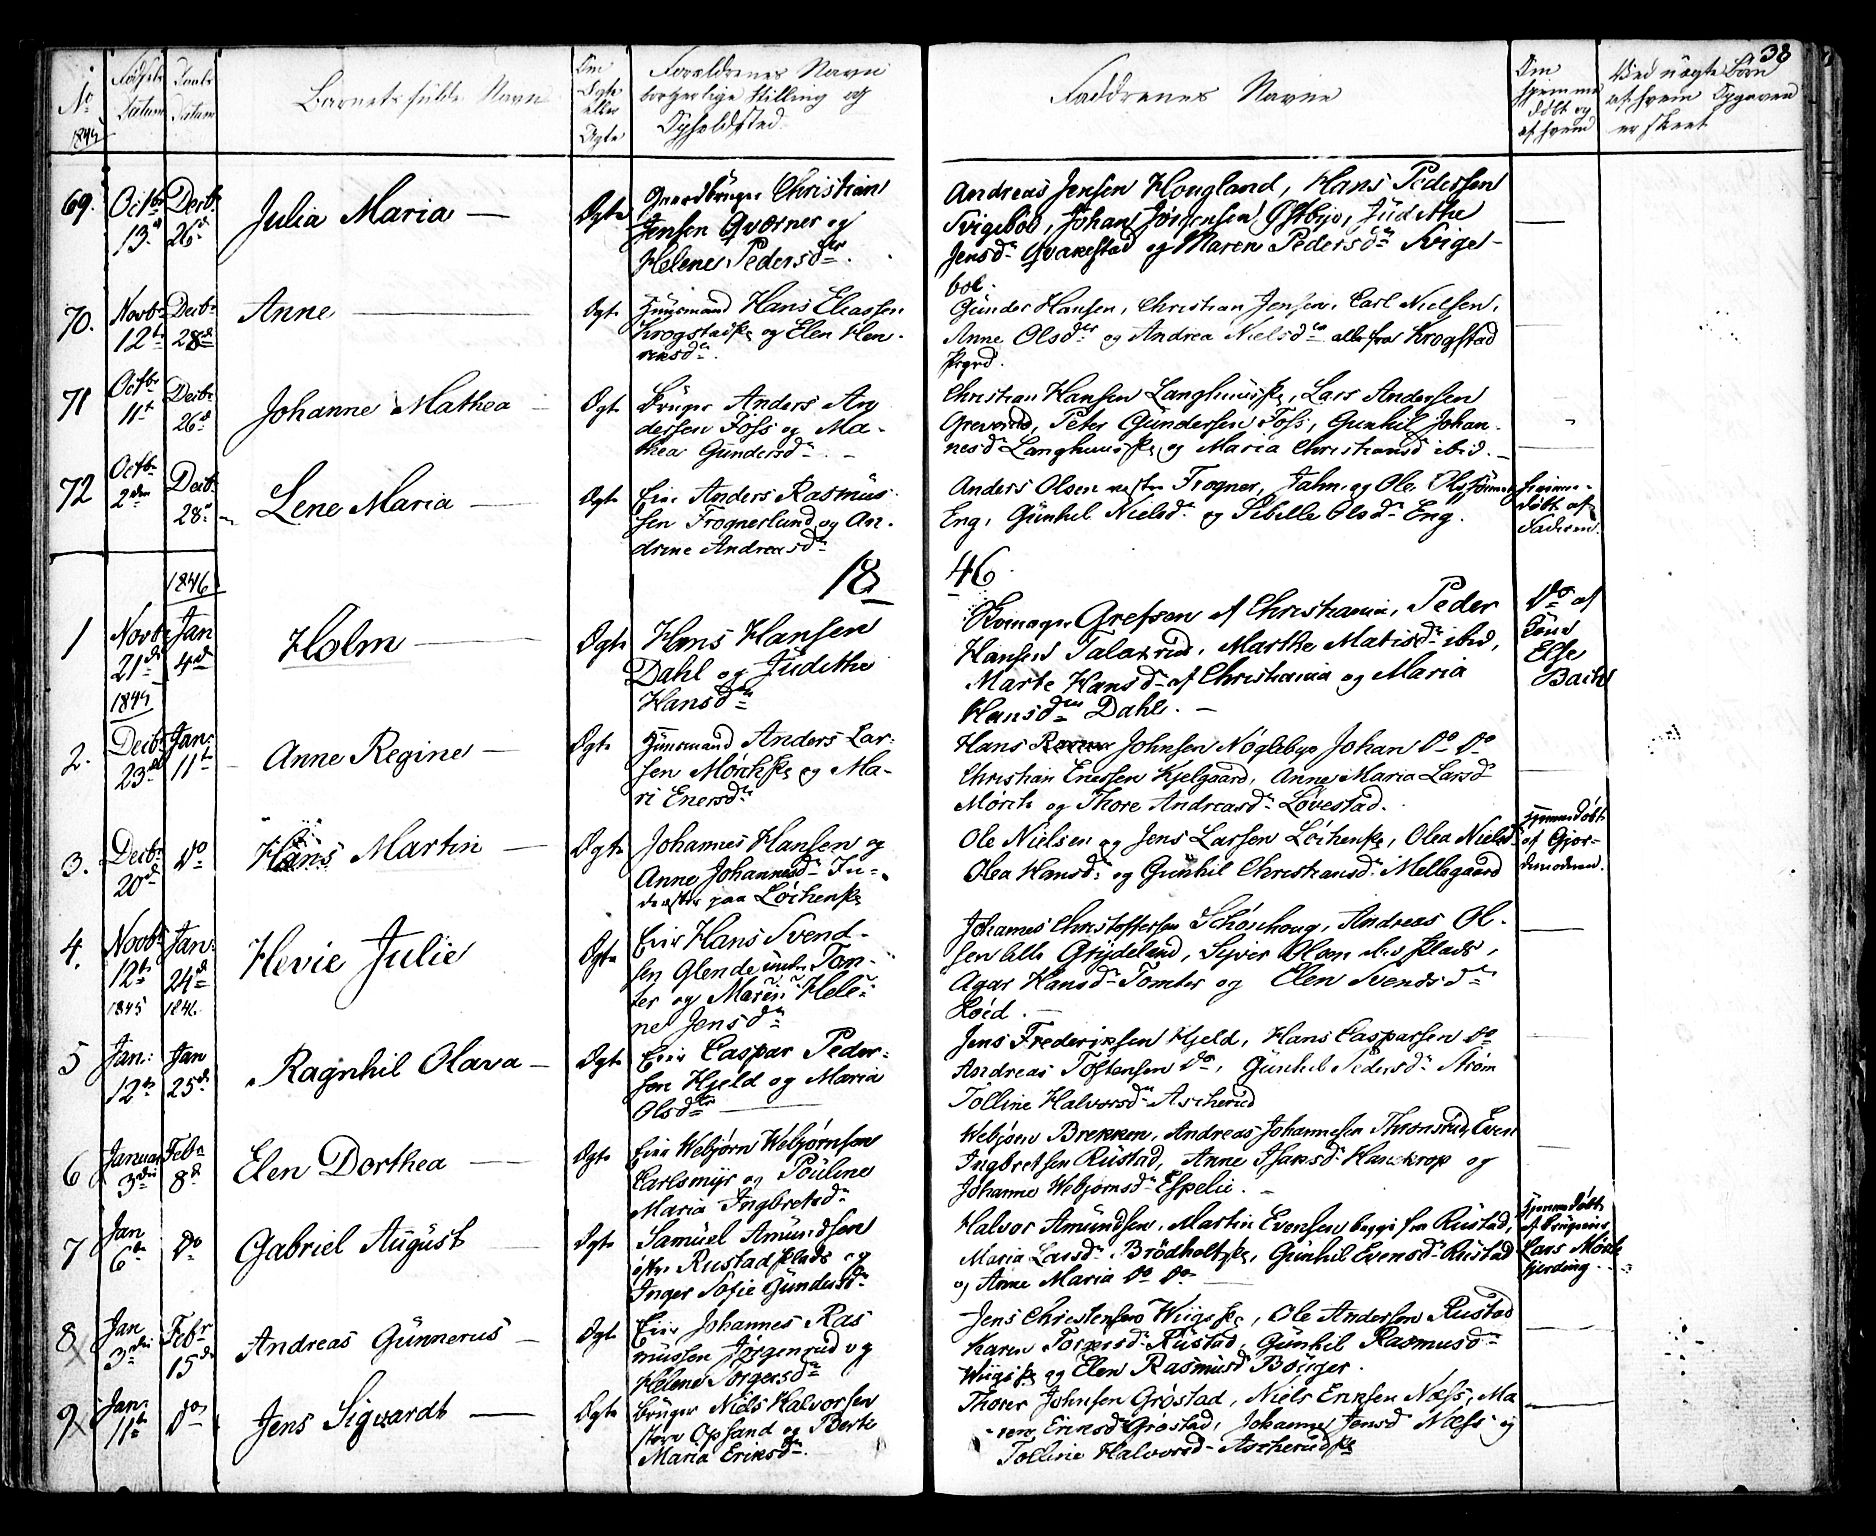 38
No 1845
Fødsels Datum
Daabs Datum
Barnets fulde Navn
Om Ægte eller Uægte
Forældrenes Navn
borgerlige Stilling og
Opholdsted.
Faddrenes Navne
Om hjemmedøbt og af hvem
Ved uægte Børn
af hvem Opgaven
er skeet
69. Octbr 13d Decbr 26d Julia Maria Ægte
Gaardbruger Christian
Jensen Qværner og
Helene Pedersdtr.
Andreas Jensen Hougland, Hans Pedersen
Svigebøl, Johan Jørgensen Østbye, Judithe
Jensdr Qvakestad og Maren Pedersdr Svige-
bøl.
70. Novbr 12te Decbr 28de Anne Ægte
Huusmand Hans Eliassen
Krogstadsk og Elen Hen-
riksdr.
Gunder Hansen, Christian Jensen, Carl Nielsen,
Anne Olsdr og Andrea Nielsdr alle fra Krogstad
71 Octbr 11t Decbr 26d Johanne Mathea Ægte
Bruger Anders An
dersen Foss og Ma-
thea Gundersdr.
Christian Hansen Langhuusk, Lars Andersen
Grevrud, Peter Gundersen Foss, Gunhil Johan-
nesdr Langhuusk og Maria Christiansd ibid.
72 Octbr 2den Decbr 28d Lene Maria Ægte
Eier Anders Rasmus-
sen Frognerlund og An-
drine Andreasdr
Anders Olsen vestre Frogner, Jahn og Ole
Eng, Gunhil Nielsdr og Sibille Olsdr Eng.
hjemme-
døbt af
Faderen.
1846
1846.
1 Novbr 21de 1845 Jan 4d Holm Ægte
Hans Hansen
Dahl og Judithe
Hansdr
Grefsen af Christiania, Peder
Hansen Talaxrud, Marthe Matisdr ibid,
Marte Hansdr af Christiania og Maria
Hansdr Dahl.
Do af
Else
Bach
2. Decbr 23de Jan: 11t Anne Regine Ægte
Huusmand Anders Lar-
sen Mørchsk og Ma-
ri Enersdr
Hans Johnsen Nøglebye Johan Do Do
Christian Enersen Kjelgaard, Anne Maria Larsdr
Mørch og Thore Andreasdr Løvestad.
3. Decbr 20d Do Hans Martin Ægte
Johannes Hansen og
Anne Johannesdr In-
derster paa Løchensk
Ole Nielsen og Jens Larsen Løchensk, Olea Nielsdr
Olea Hansdr og Gunhil Christiansdr Mellegaard
hjemmedøbt
af Gjor-
demoderen.
4. Novbr 12te 1845 Jan: 24d 1846 Hevie Julie Ægte
Eier Hans Svend-
sen Glende under Tom-
ter og Maren Hele-
ne Jensdr
Johannes Christoffersen Schøschoug, Andreas Ol-
sen lille Grydeland, Syver Olsen plads,
Agar Hansdr Tomter og Elen Svendsdr
5 Jan: 12te Jan 25d Ragnhil Olava Ægte
Eier Caspar Peder-
sen Hjeld og Maria
Olsdtr
Jens Frederiksen Hjeld, Hans Casparsen Do
Andreas Tostensen Do, Gunhil Pedersdr Strøm
Tolline Halvorsdr Ascherud
6 Januar 3die Febr 8d Elen Dorthea Ægte
Eier Webjørn Webjørnsen
Carlsmyr og Pouline
Maria Ingbretsdr
Webjørn Brekken, Andreas Johannesen Thronstrud, Even
Ingbretsen Rustad, Anne Isaksdr Hauskrop og
Johanne Webjørnsdr Espelie.
7 Jan 6te Do Gabriel August Ægte
Samuel Amundsen
østre Rustadplads og
Inger Sofie Gundersdr
Halvor Amundsen, Martin Evensen begge fra Rustad,
Maria Larsdr Brødholtsk, Gunhil Evensdr Rustad
og Anne Maria Do Do
hjemmedøbt
Lars Mørk
8 Jan 3die Febr 15d Andreas Gunnerus Ægte
Eier Johannes Ras
mussen Jørgenrud og
Helene Torgersdr
Jens Christensen Wiigesk, Ole Andersen Rustad
Karen Torgersdr Rustad, Gunhil Rasmusdr
Wiigsk og Elen Rasmusdr Bouger.
9 Jan: 11te Do Jens Sigwardt Ægte
Bruger Niels Halvorsen
store Opsand og Berte
Maria Eriksdr.
Thorer Johnsen Grøstad, Niels Eriksen Næss, Ma
ren Eriksdr Grøstad, Johanne Jensd Næss og
Tolline Halvorsdr Ascherudsk